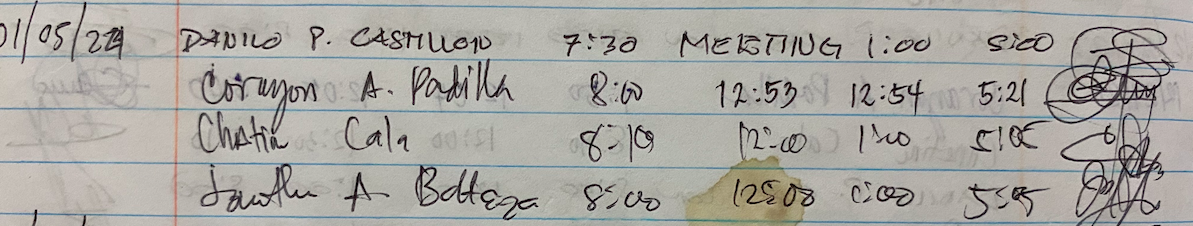 01/05/24 DANILO P. CASTILLON 7:30 MEETING 1:00 5:00
Corazon A. Padilla 8:00 12:53 12:54 5:21
Cala 8:10 12:00 1:00 5:05
A. 8:00 12:00 1:00 5:05